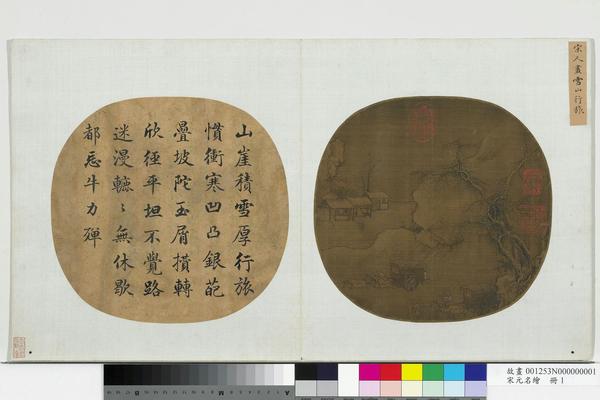 宋人畫雪山行旅
山崖積雪厚行旅
慣衝寒凹凸銀葩
疊坡陀玉屑攢轉
欣徑平坦不覺路
迷漫轆〻無休歇
都忘牛力殫
故畫 001253N000000001
宋元名繪 冊 1